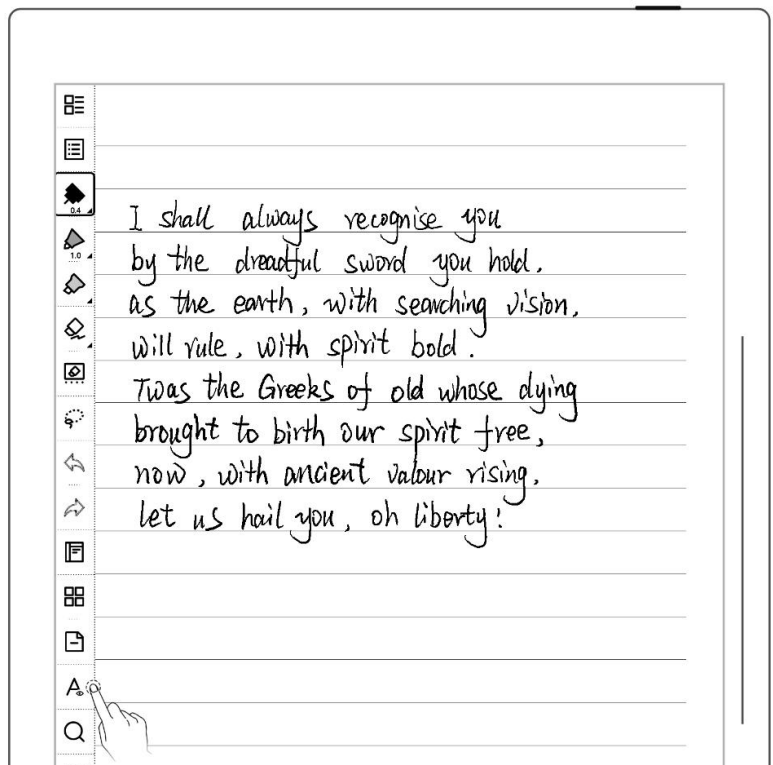 0.4
1.0
I shall always recognise you
by the dreadful sword you hold,
as the earth, with searching vision,
will rule, with spirit bold.
Twas the Greeks of old whose dying
brought to birth our spirit free,
now, with ancient valour rising,
let us hail you, oh liberty!
A